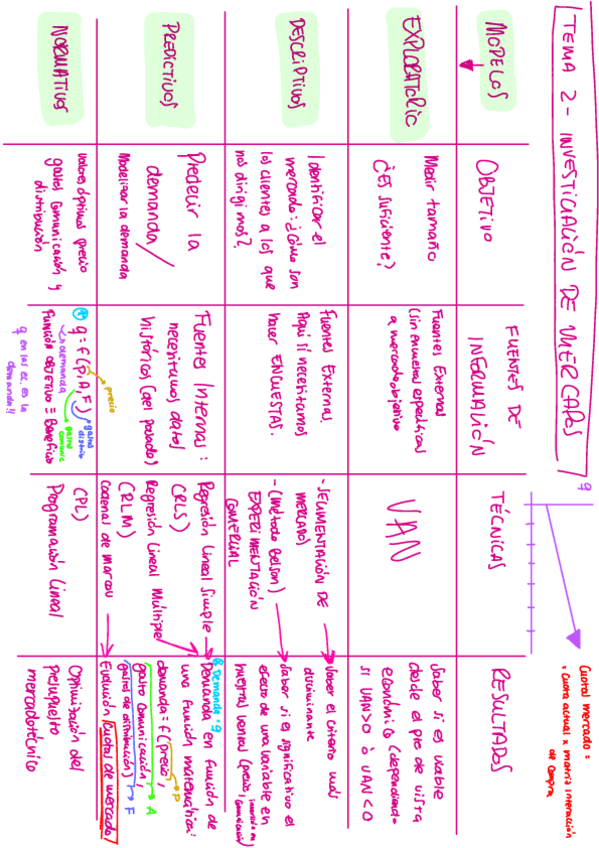 TEMA 2 - INVESTIGACIÓN DE MERCADOS
MODELOS
OBJETIVO
FUENTES DE
INFORMACIÓN
TÉCNICAS
RESULTADOS
EXPLORATORIO
Medir tamaño
¿Es suficiente?
Fuentes Externas
(sin encuestas específicas
a mercado objetivo
VAN
Saber si es viable
desde el pto de vista
económico (dependiendo
si VAN>0 ò VAN<0
DESCRIPTIVOS
Identificar el
mercado: ¿Cómo son
los clientes a los que
nos dirigimos?
Fuentes Externas.
Aquí sí necesitamos
hacer ENCUESTAS.
- SEGMENTACIÓN DE
MERCADO
- (Método Belson)
EXPERIMENTACIÓN
COMERCIAL
Saber el criterio más
discriminante
Saber si es significativo el
efecto de una variable en
nuestras ventas (precio,
comunicación)
PREDICTIVOS
Predecir la
demanda /
Modelizar la demanda
Fuentes Internas:
necesitamos datos
históricos (del pasado)
Regresión Lineal Simple
(RLS)
Regresión Lineal Múltiple
(RLM)
Cadenas de Marcov
Demanda = q
Demanda en función de
una función matemática:
demanda = f(precio, → P
gasto comunicación, → A
gastos de distribución) → F
Evolución Cuotas de mercado
NORMATIVOS
Valores óptimos precio
gastos comunicación y
distribución
q = f(P, A, F)
precio
gastos
distrib
gastos
comunic
demanda
Función OBJETIVO = Beneficio
q en las ec. es la
demanda!!
(PL)
Programación Lineal
Optimización del
presupuesto
mercadotécnico
q
Cuota mercado =
= Cuota actual x matriz interacción
de compra